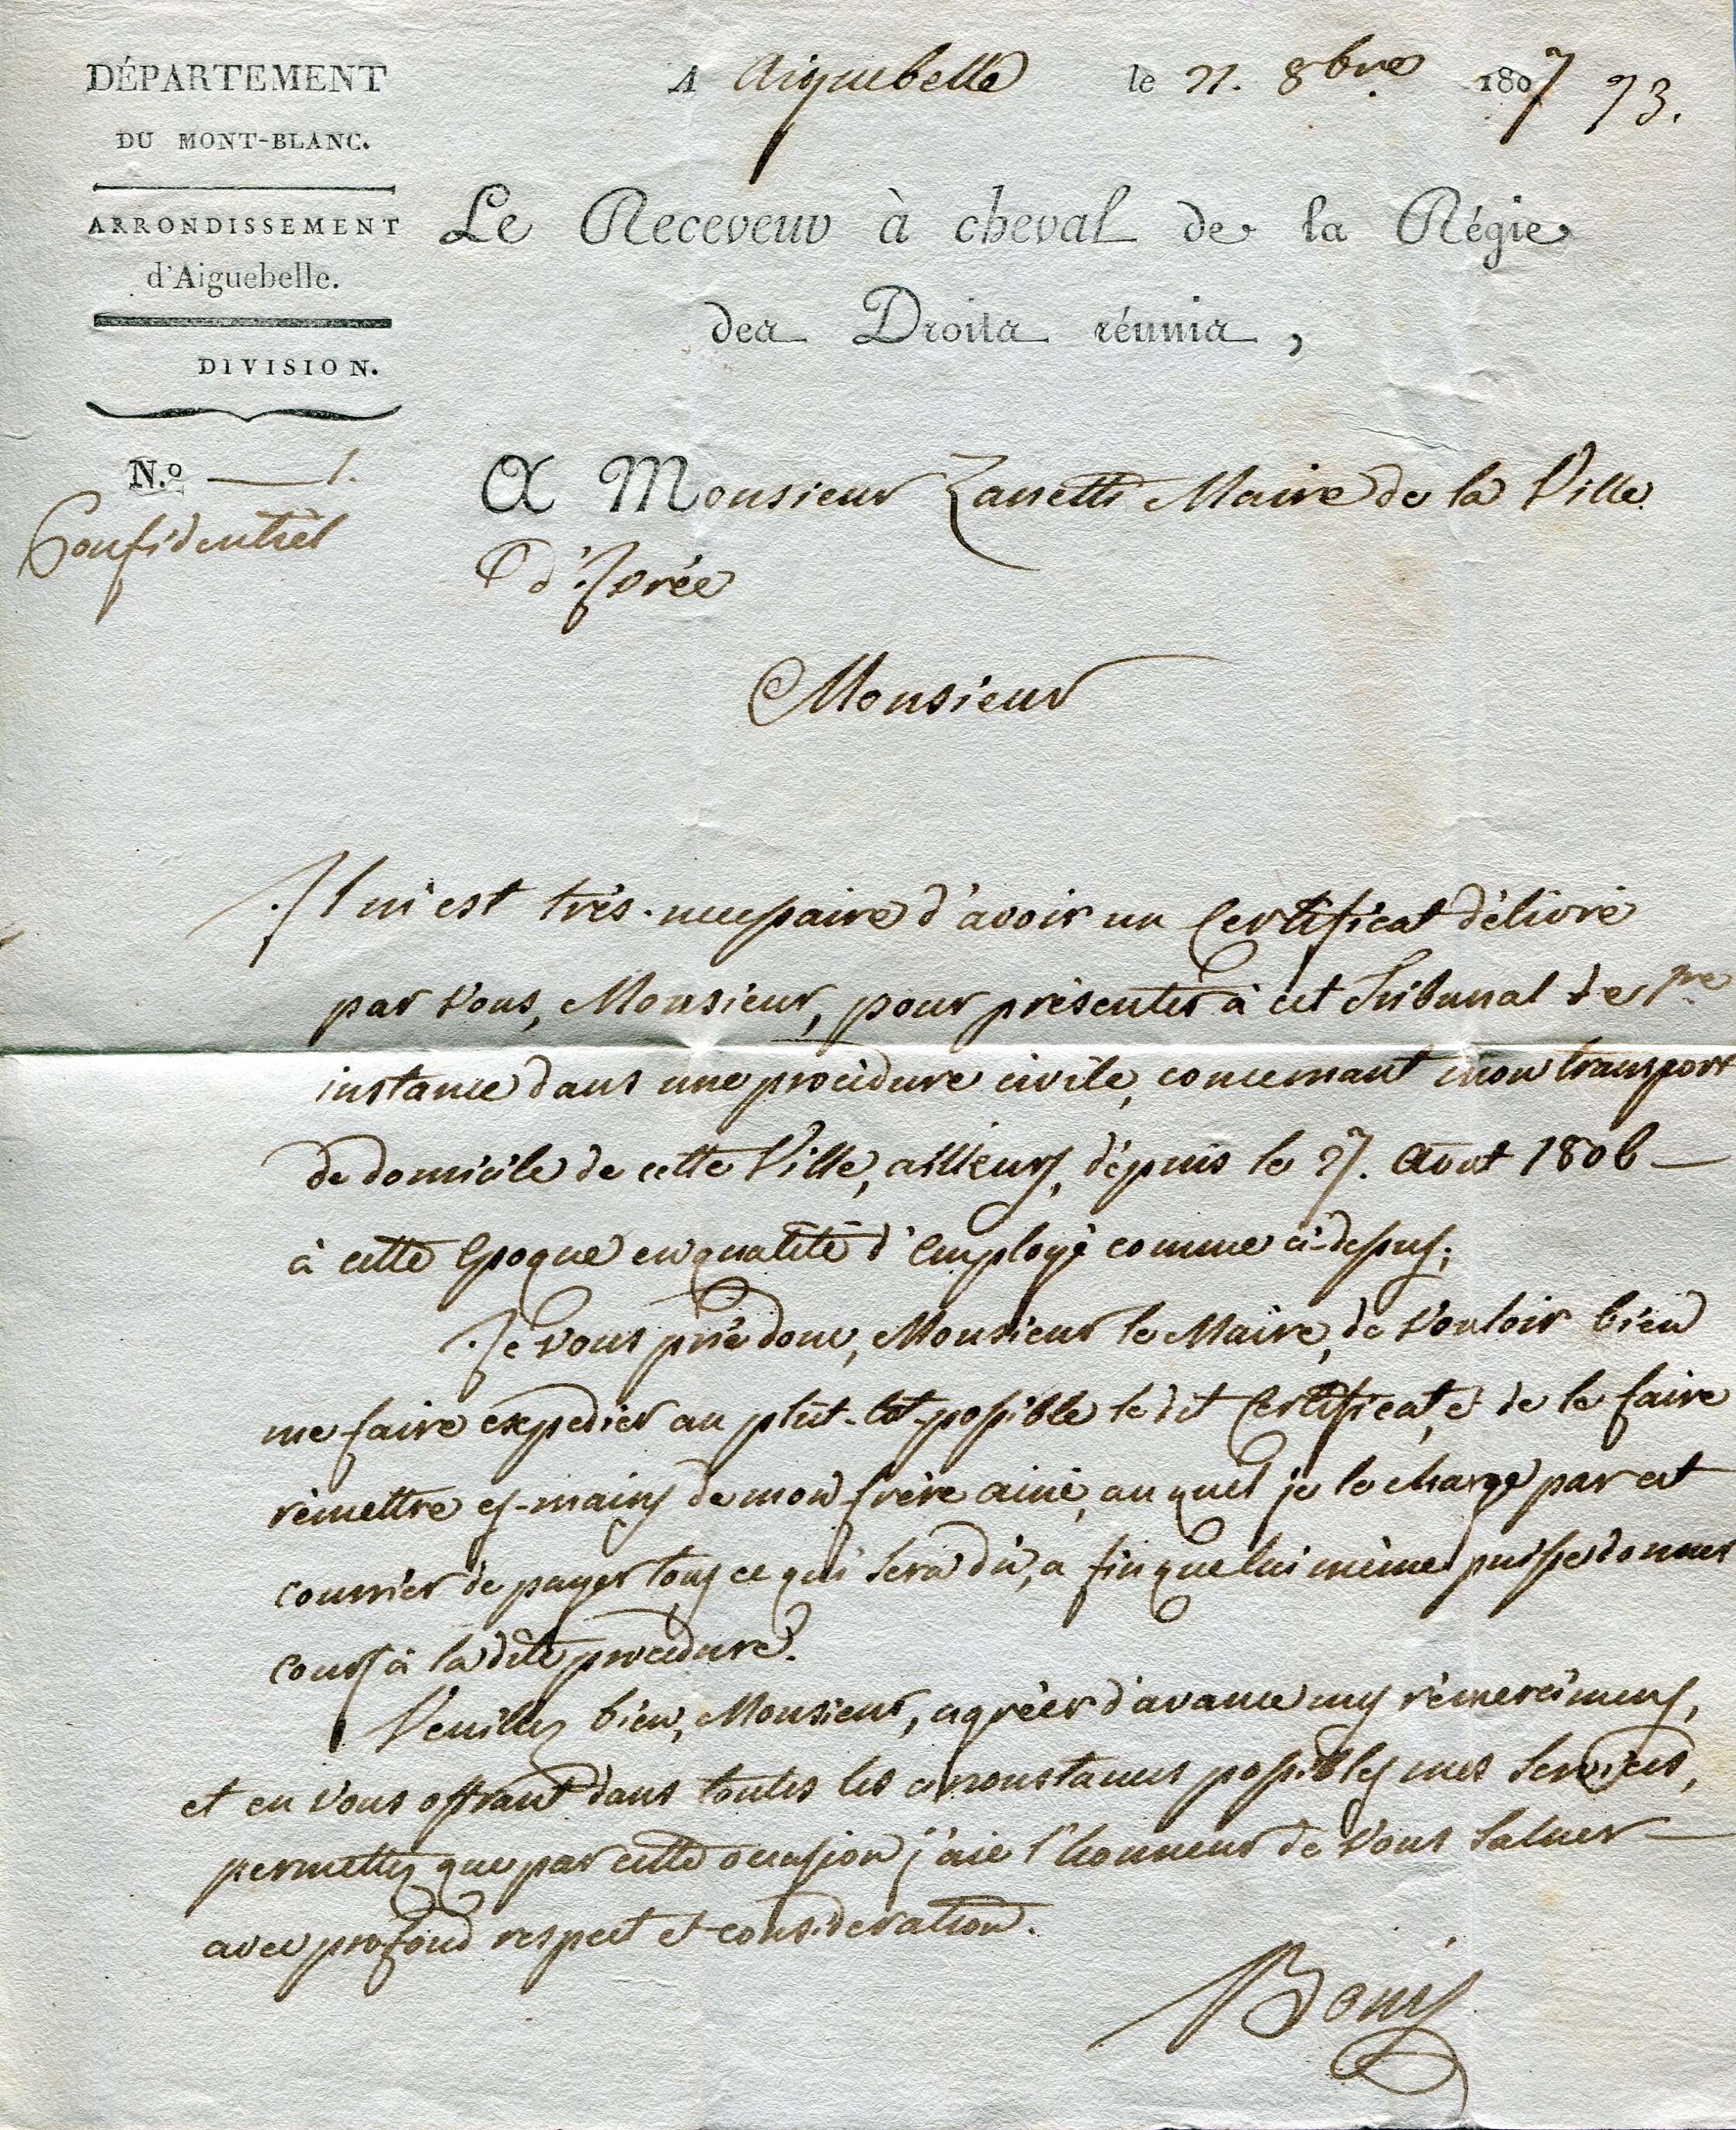 DÉPARTEMENT
DU MONT-BLANC.
ARRONDISSEMENT
d'Aiguebelle.
DIVISION.
N.º 1.
Confidentiel
A Aiguebelle le 21. 8bre 1807
93.
Le Receveur à cheval de la Régie
des Droits réunis,
A Monsieur Zanetti Maire de la Ville
d'Ivrée
Monsieur
Il m'est très-necessaire d'avoir un Certificat délivré
par Vous, Monsieur, pour présenter à cet Tribunal de 1re
instance dans une procèdure civile, concernant mon transport
de domicile de cette Ville, ailleurs, dépuis le 27. Aout 1806 —
à cette Epoque en qualité d'Employé comme ci-dessus;
Je Vous prie donc, Monsieur le Maire, de Vouloir bien
me faire expedier au plût-tot-possible le dit Certificat, e de le faire
rèmettre es-mains de mon frère ainé, au quel je le charge par cet
courrier de payer tous ce qui Sera dû, a fin que lui mème puisse donner
cours à la dite procedure.
Veuillez bien, Monsieur, agréer d'avance mes rèmercimens,
et en Vous offrant dans toutes les circonstances possibles mes Services,
permettez que par cette occasion j'aie l'honneur de Vous Saluer —
avec profond respect et consideration.
Bonis